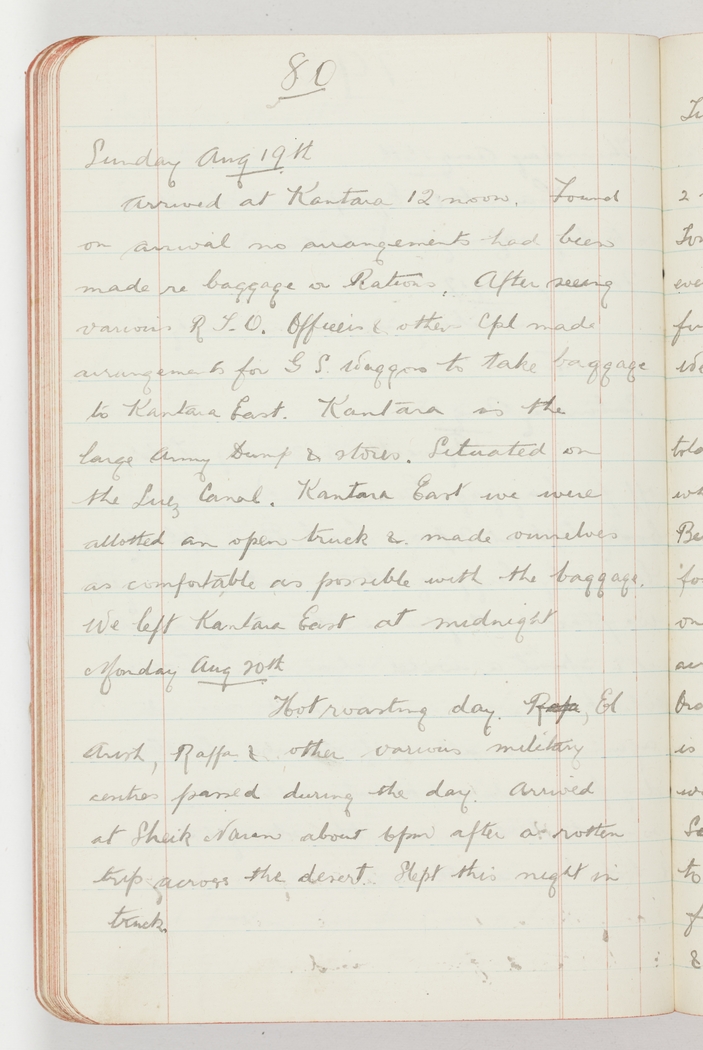 80
Sunday Aug 19th
Arrived at Kantara 12 noon. Found
on arrival no arrangements had been
made re baggage or Rations. After seeing
various R.T.O. Officers & other Cpl made
arrangements for G S. Waggons to take baggage
to Kantara East. Kantara is the
large Army Dump & stores. Situated on
the Suez Canal. Kantara East we were
allotted an open truck & made ourselves
as comfortable as possible with the baggage.
We left Kantara East at midnight
Monday Aug 20th
Hot roasting day. Rafa, El
Arish, Raffa & other various military
centres passed during the day. Arrived
at Sheik Naran about 6pm after a rotten
trip across the desert. Slept this night in
truck.
2
on
is
to
f
&